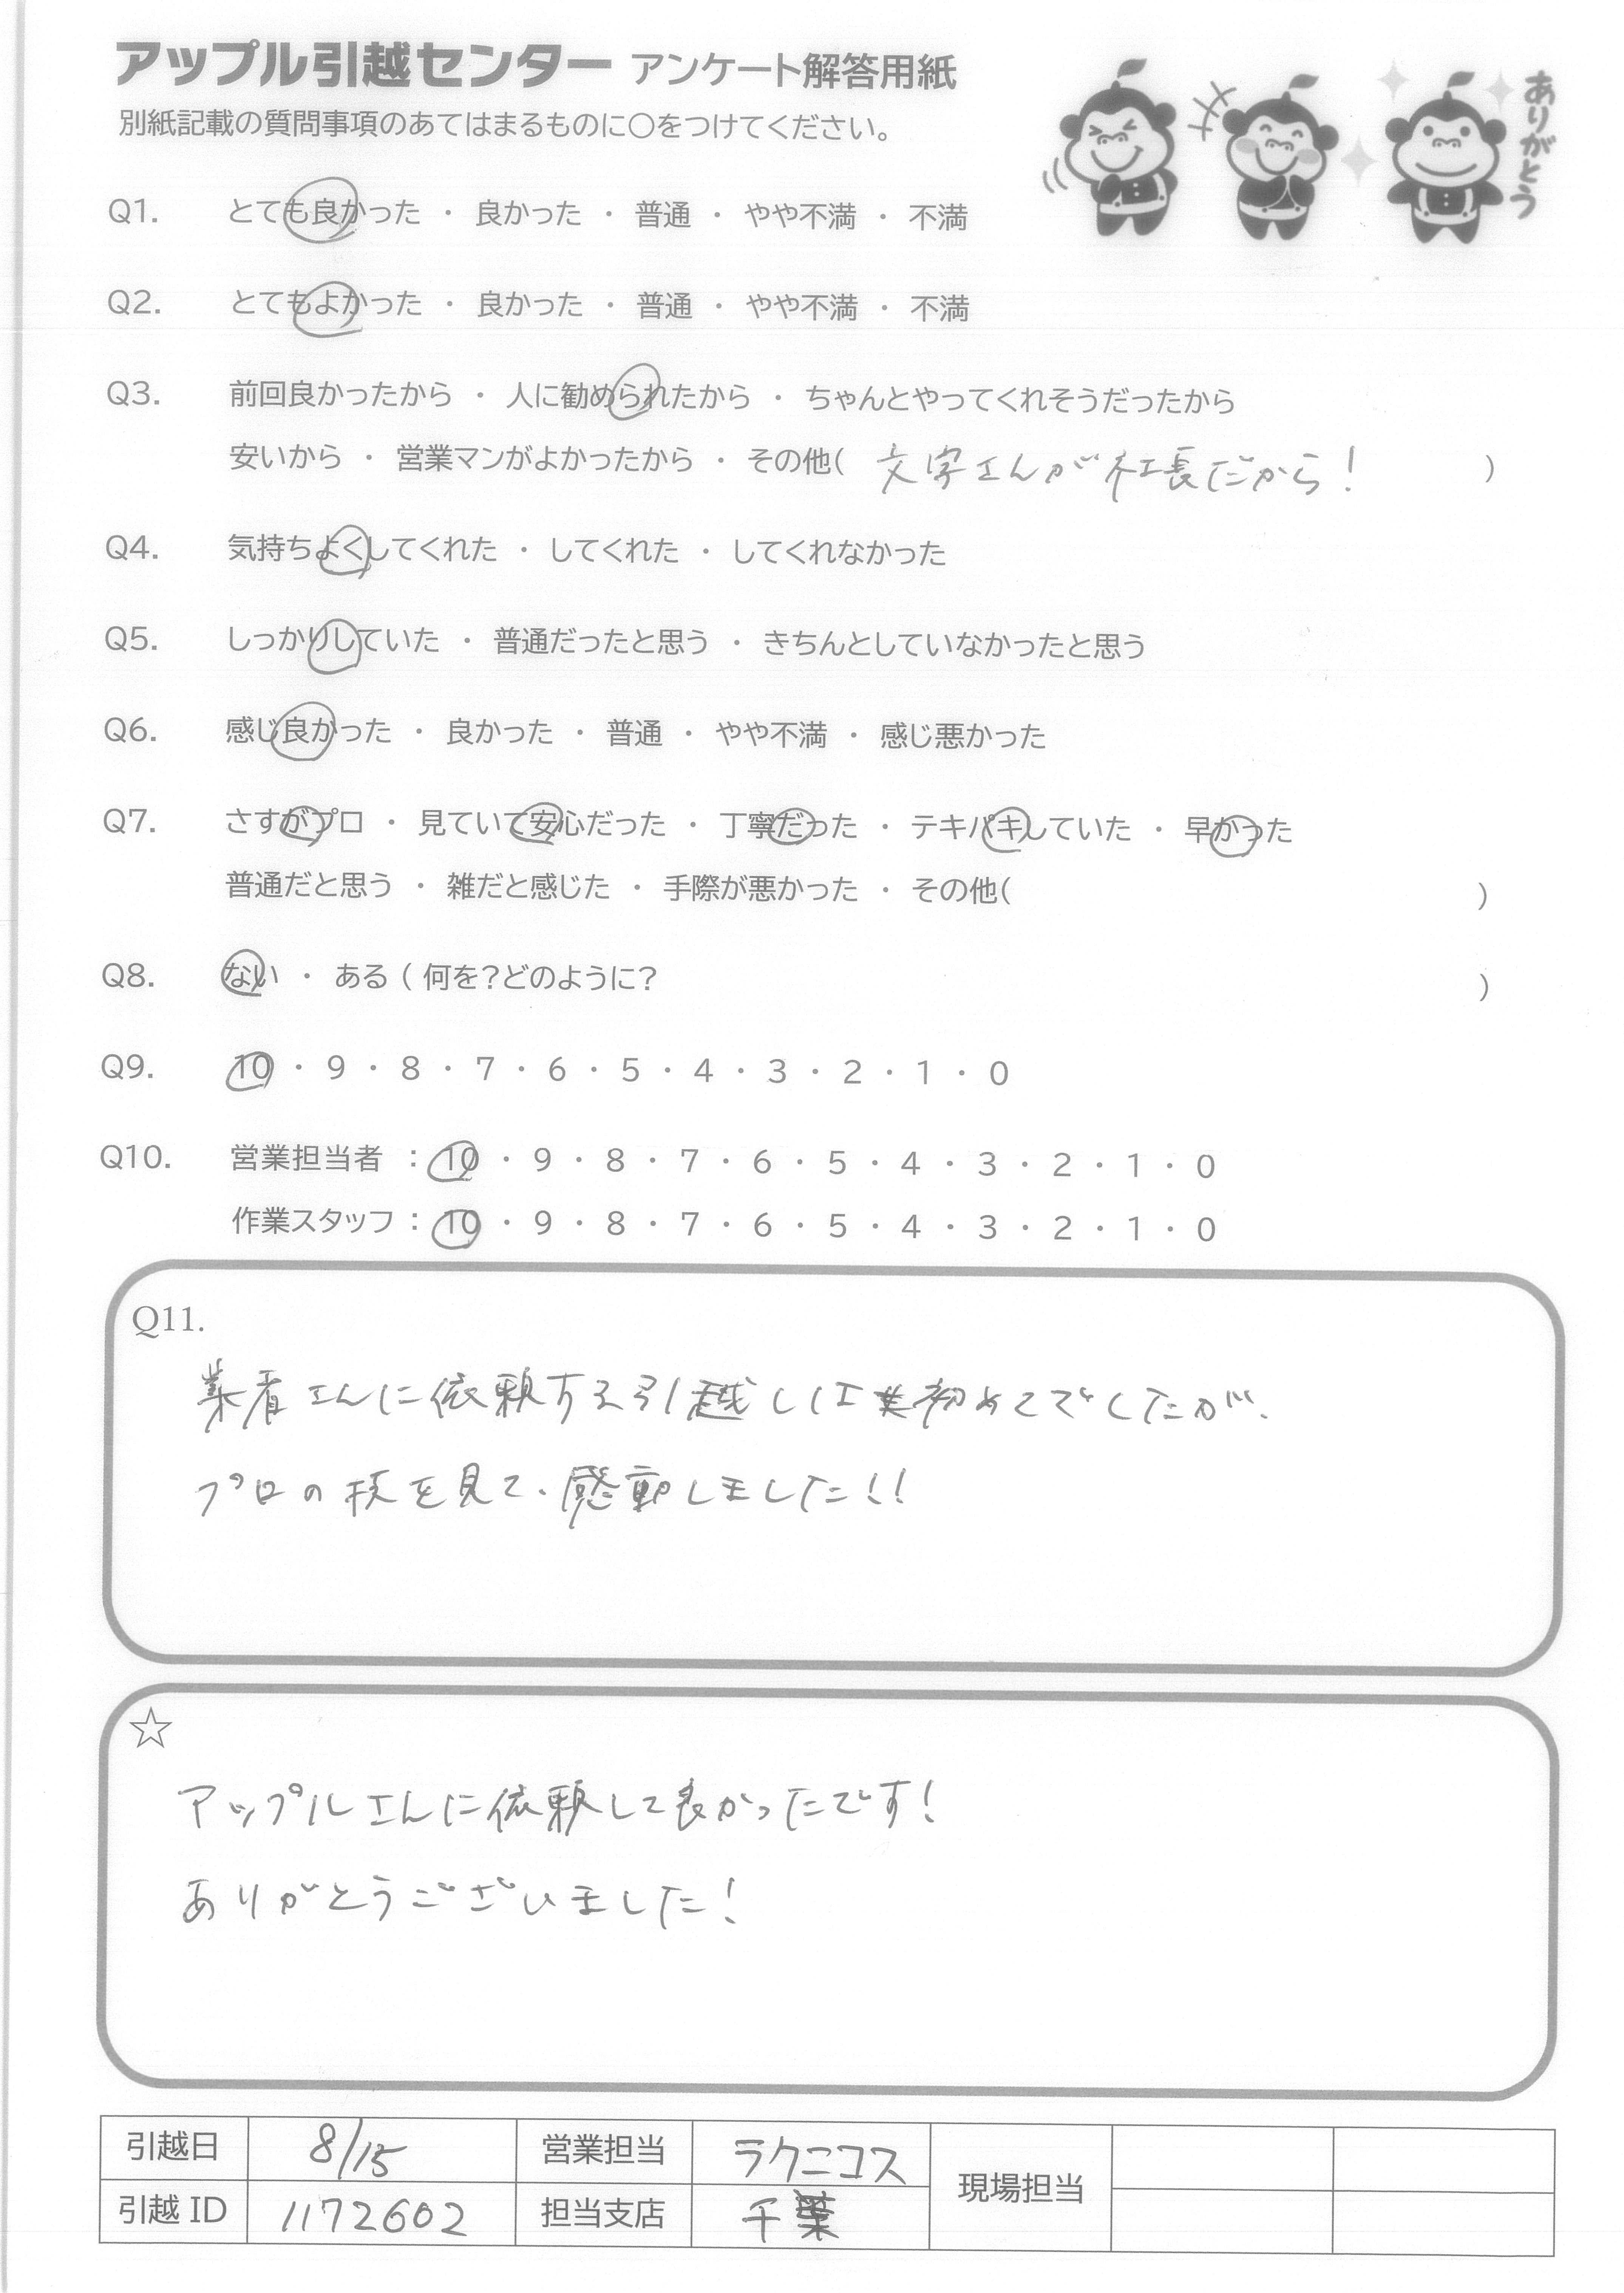 アップル引越センター アンケート解答用紙
別紙記載の質問事項のあてはまるものに○をつけてください。
ありがとう
Q1. とても良かった ・ 良かった ・ 普通 ・ やや不満 ・ 不満
Q2. とてもよかった ・ 良かった ・ 普通 ・ やや不満 ・ 不満
Q3. 前回良かったから ・ 人に勧められたから ・ ちゃんとやってくれそうだったから
安いから ・ 営業マンがよかったから ・ その他( 文字さんが社長だから! )
Q4. 気持ちよくしてくれた ・ してくれた ・ してくれなかった
Q5. しっかりしていた ・ 普通だったと思う ・ きちんとしていなかったと思う
Q6. 感じ良かった ・ 良かった ・ 普通 ・ やや不満 ・ 感じ悪かった
Q7. さすがプロ ・ 見ていて安心だった ・ 丁寧だった ・ テキパキしていた ・ 早かった
普通だと思う ・ 雑だと感じた ・ 手際が悪かった ・ その他( )
Q8. ない ・ ある ( 何を?どのように? )
Q9. 10 ・ 9 ・ 8 ・ 7 ・ 6 ・ 5 ・ 4 ・ 3 ・ 2 ・ 1 ・ 0
Q10. 営業担当者 : 10 ・ 9 ・ 8 ・ 7 ・ 6 ・ 5 ・ 4 ・ 3 ・ 2 ・ 1 ・ 0
作業スタッフ : 10 ・ 9 ・ 8 ・ 7 ・ 6 ・ 5 ・ 4 ・ 3 ・ 2 ・ 1 ・ 0
Q11.
業者さんに依頼する引越しは初めてでしたが、
プロの技を見て、感動しました!!
☆
アップルさんに依頼して良かったです!
ありがとうございました!
引越日 8/15 営業担当 ラクニコス 現場担当
引越 ID 1172602 担当支店 千葉